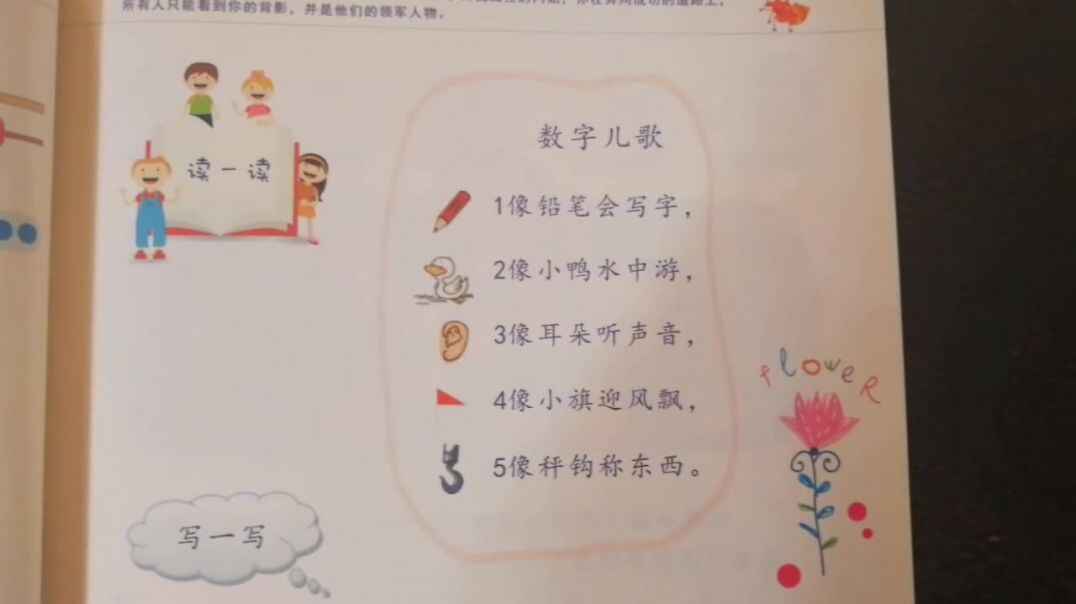 所有人只能看到你的背影，并是他们的领军人物。
读一读
数字儿歌
1像铅笔会写字，
2像小鸭水中游，
3像耳朵听声音，
4像小旗迎风飘，
5像秤钩称东西。
flowER
写一写